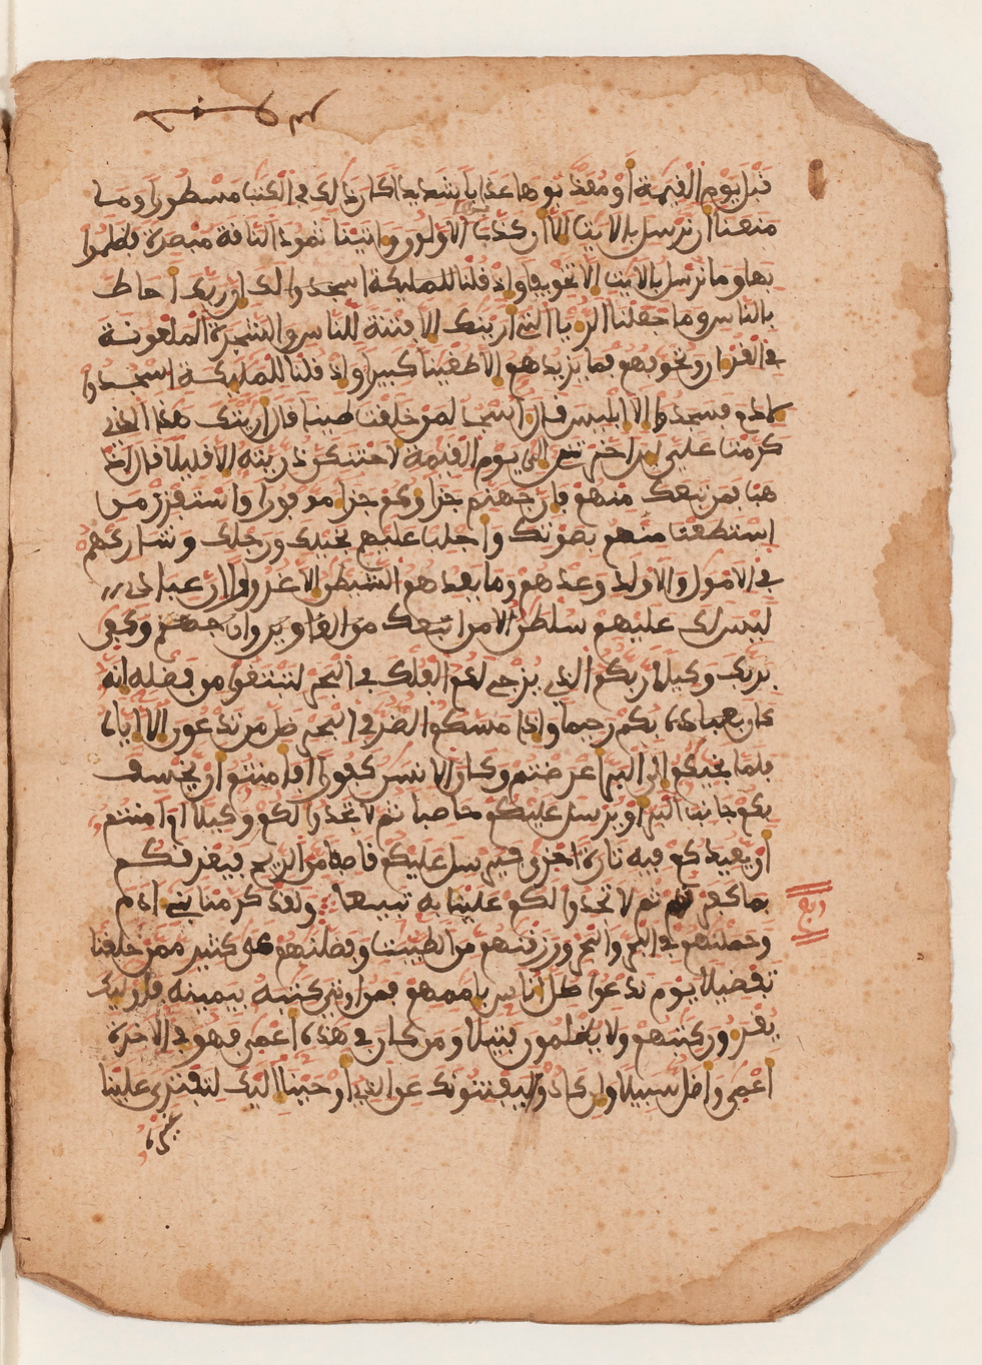 قبل يوم القيمة او معذبوها عذابا شديدا كان ذلك في الكتب مسطورا وما
منعنا ان نرسل بالايت الا ان كذب بها الاولون واتينا ثمود الناقة مبصرة فظلموا
بها وما نرسل بالايت الا تخويفا واذ قلنا للمليكة اسجدوا لك ان ربك احاط
بالناس وما جعلنا الريا التي ارينك الا فتنة للناس والشجرة الملعونة
في القران ونخوفهم فما يزيدهم الا طغينا كبيرا واذ قلنا للمليكة اسجدوا
لادم فسجدوا الا ابليس قال اسجد لمن خلقت طينا قال اريتك هذا الذي
كرمت علي لين اخرتن الى يوم القيمة لاحتنكن ذريته الا قليلا قال اذ
هب فمن تبعك منهم فان جهنم جزاوكم جزا موفورا واستفزز من
استطعت منهم بصوتك واجلب عليهم بخيلك ورجلك وشاركهم
في الامول والاولد وعدهم وما يعدهم الشيطن الا غرورا ان عبادي
ليس لك عليهم سلطن الا من اتبعك من الغاوين وان جهنم وكفى
بربك وكيلا ربكم الذي يزجي لكم الفلك في البحر لتبتغوا من فضله انه
كان بعباده بكم رحيما واذا مسكم الضر في البحر ضل من تدعون الا اياه
فلما نجيكم الى البر اعرضتم وكان الانسن كفورا افامنتم ان يخسف
بكم جانب البر او يرسل عليكم حاصبا ثم لا تجدوا لكم وكيلا ام امنتم
ان يعيدكم فيه تارة اخرى فيرسل عليكم قاصفا من الريح فيغرقكم
بما كفرتم ثم لا تجدوا لكم علينا به تبيعا ولقد كرمنا بني ادم
ربع
وحملنهم في البر والبحر ورزقنهم من الطيبت وفضلنهم على كثير ممن خلقنا
تفضيلا يوم ندعوا كل اناس باممهم فمن اوتي كتبه بيمينه فاوليك
يقرون كتبهم ولا يظلمون فتيلا ومن كان في هذه اعمى فهو في الاخرة
اعمى واضل سبيلا وان كادوا ليفتنونك عن الذي اوحينا اليك لتفتري علينا
غيره